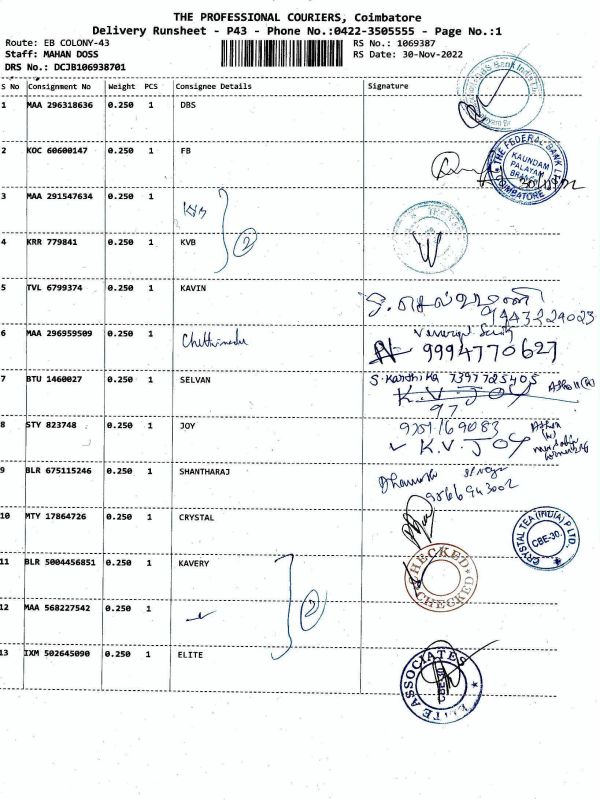 THE PROFESSIONAL COURIERS, Coimbatore
Delivery Runsheet - P43 - Phone No.:0422-3505555 - Page No.:1
Route: EB COLONY-43 RS No.: 1069387
Staff: MAHAN DOSS RS Date: 30-Nov-2022
DRS No.: DCJB106938701
S No Consignment No Weight PCS Consignee Details Signature
1 MAA 296318636 0.250 1 DBS
2 KOC 60600147 0.250 1 FB
THE FEDERAL BANK LTD
KAUNDAM
PALAYAM
BRANCH
COIMBATORE
3 MAA 291547634 0.250 1 KVB
4 KRR 779841 0.250 1 KVB
2
5 TVL 6799374 0.250 1 KAVIN
9443229023
6 MAA 296959509 0.250 1
9994770627
7 BTU 1460027 0.250 1 SELVAN S. Karthika 7397725405
K.V. JOY
97
8 STY 823748 0.250 1 JOY 9751169083
K.V. JOY
9 BLR 675115246 0.250 1 SHANTHARAJ
9866943002
10 MTY 17864726 0.250 1 CRYSTAL
CRYSTAL TEA (INDIA) P LTD.
CBE-30
11 BLR 5004456851 0.250 1 KAVERY
CHECKED
CHECKED
12 MAA 568227542 0.250 1
2
13 IXM 502645090 0.250 1 ELITE
ELITE ASSOCIATES